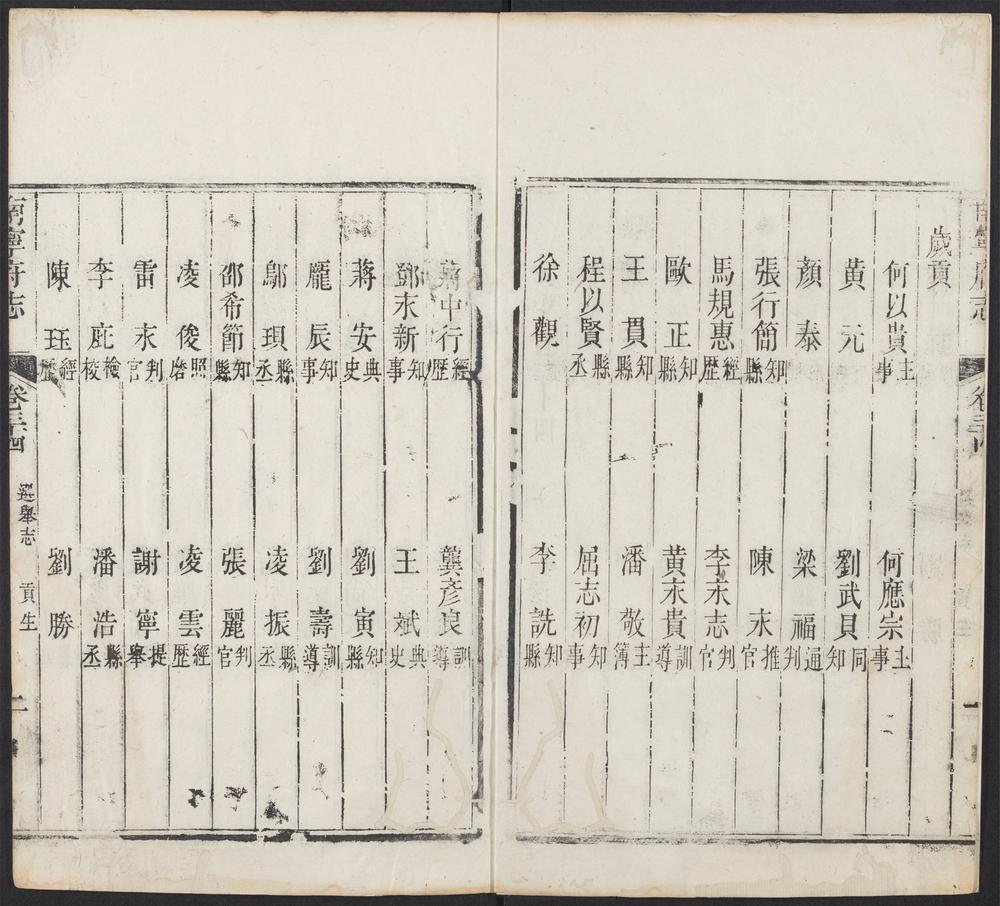 歲貢
何以貴主事 何應宗主事
黃元 劉武貝同知
顏泰 梁福通判
張行簡知縣 陳永推官
馬規惠經歷 李永志判官
歐正知縣 黃永貴訓導
王貫知縣 潘敬主簿
程以賢縣丞 屈志初知事
徐觀 李詵知縣
蔣中行經歷 龔彥良訓導
鄧永新知事 王斌典史
蔣安典史 劉寅知縣
龐辰知事 劉壽訓導
鄔 縣丞 凌振縣丞
邵希節知縣 張麗判官
凌俊照磨 凌雲經歷
雷永判官 謝寧提舉
李庇檢校 潘浩縣丞
陳珏經歷 劉勝
南寧府志 卷三十四 選舉志 貢生 二